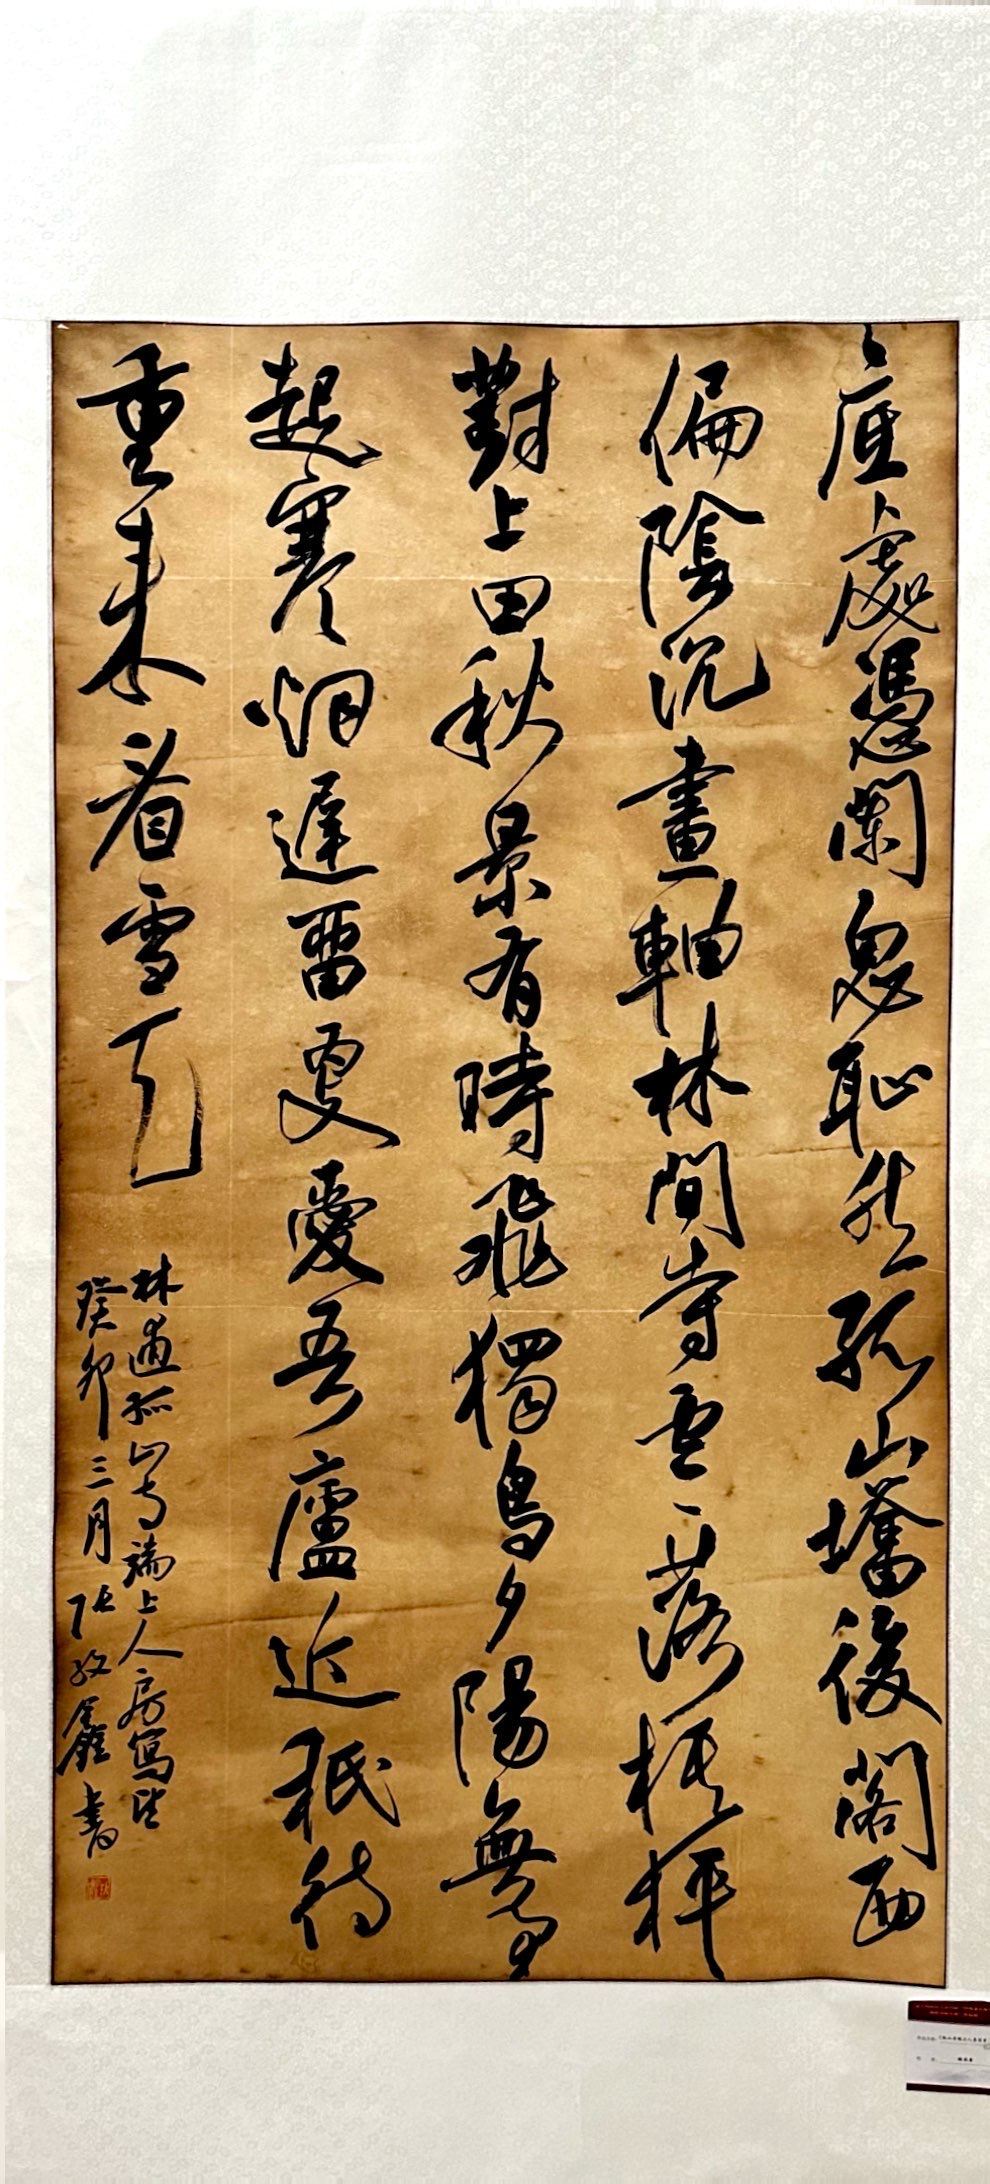 底處憑闌思眇然孤山塔後閣西
偏陰沉畫軸林間寺零落棋枰
葑上田秋景有時飛獨鳥夕陽無事
起寒烟遲留更愛吾廬近秖待
重來看雪天
林逋孤山寺端上人房寫望
癸卯三月張鑫書